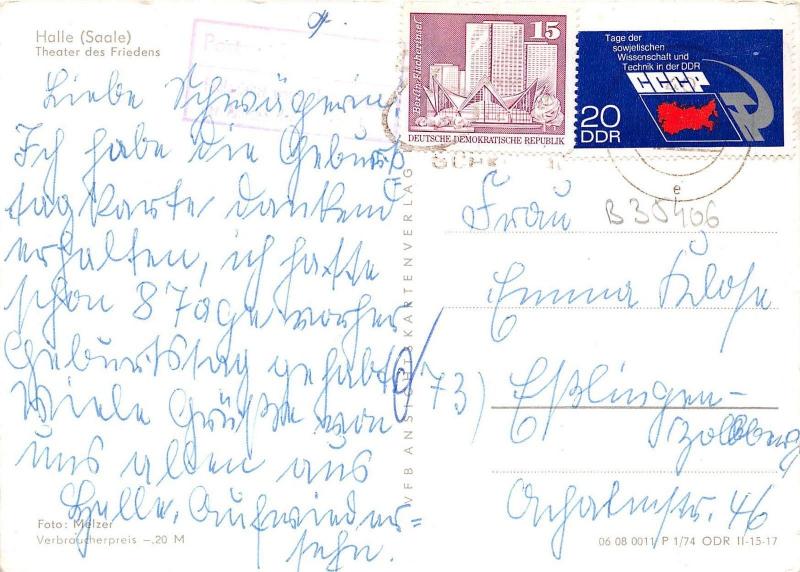 Halle (Saale)
Theater des Friedens
Liebe Schwägerin
Ich habe die Geburts
tagkarte dankend
erhalten, ich hatte
schon 8 Tage vorher
Geburtstag gehabt
Viele Grüße von
uns allen aus
Halle. Aufwieder-
sehn.
Foto: Melzer
Verbraucherpreis –,20 M
VFB ANSICHTSKARTENVERLAG
Berlin-Fischerinsel
15
DEUTSCHE DEMOKRATISCHE REPUBLIK
Tage der
sowjetischen
Wissenschaft und
Technik in der DDR
CCCP
20
DDR
e
B 35406
Frau
Emma Klose
73) Eßlingen-
Zollberg
Achalmstr. 46
06 08 0011 P 1/74 ODR II-15-17